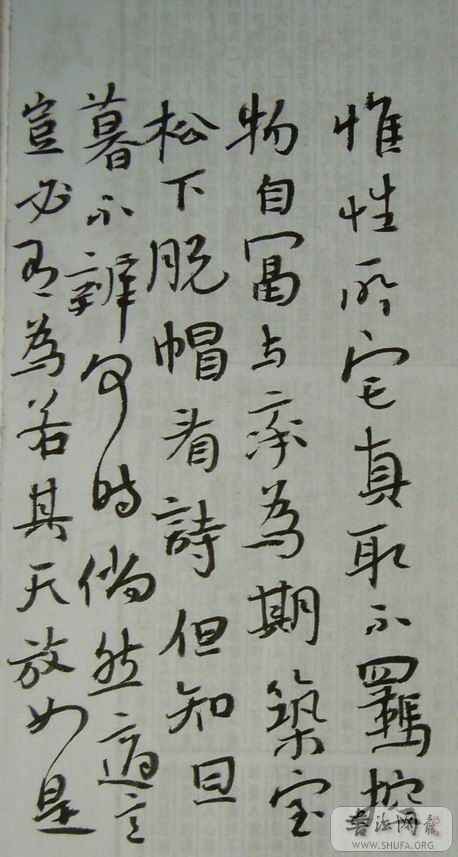 惟性所宅真取不羈控
物自冨与率為期築室
松下脱帽看詩但知旦
暮不辨何時倘然適意
豈必有為若其天放如是
書法网
WWW.SHUFA.ORG